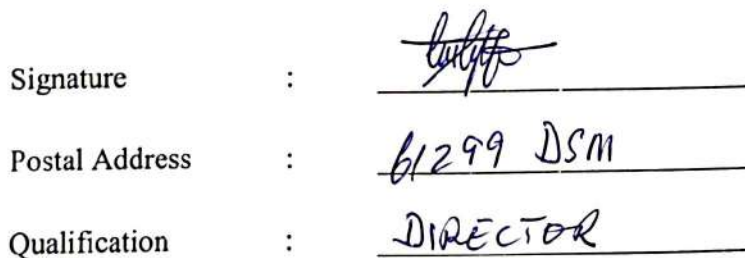 Signature :
Postal Address : 61299 DSM
Qualification : DIRECTOR